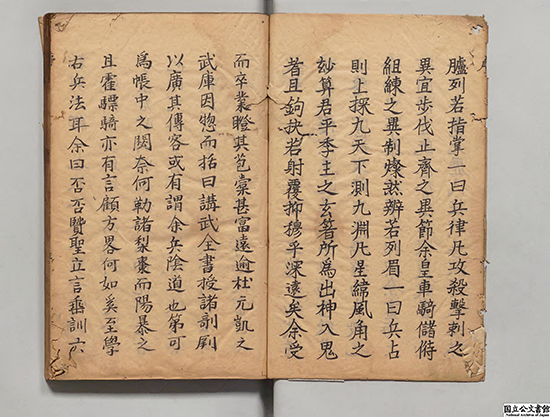 臚列若指掌一曰兵律凡攻殺擊刺之
異宜步伐止齊之異節余皇車騎儲偫
組練之異制燦然辨若列眉一曰兵占
則上探九天下測九淵凡星緯風角之
玅算君平季主之玄簭所為出神入鬼
者且鉤抉若射覆抑穆乎深遠矣余受
而卒業瞪其苞彙甚富遠逾杜元凱之
武庫因惣而括曰講武全書授諸剞劂
以廣其傳客或有謂余兵陰道也第可
為帳中之閟奈何勒諸梨棗而陽暴之
且霍驃騎亦有言顧方畧何如奚至學
古兵法耳余曰否否賢聖立言垂訓六
国立公文書館
National Archives of Japan